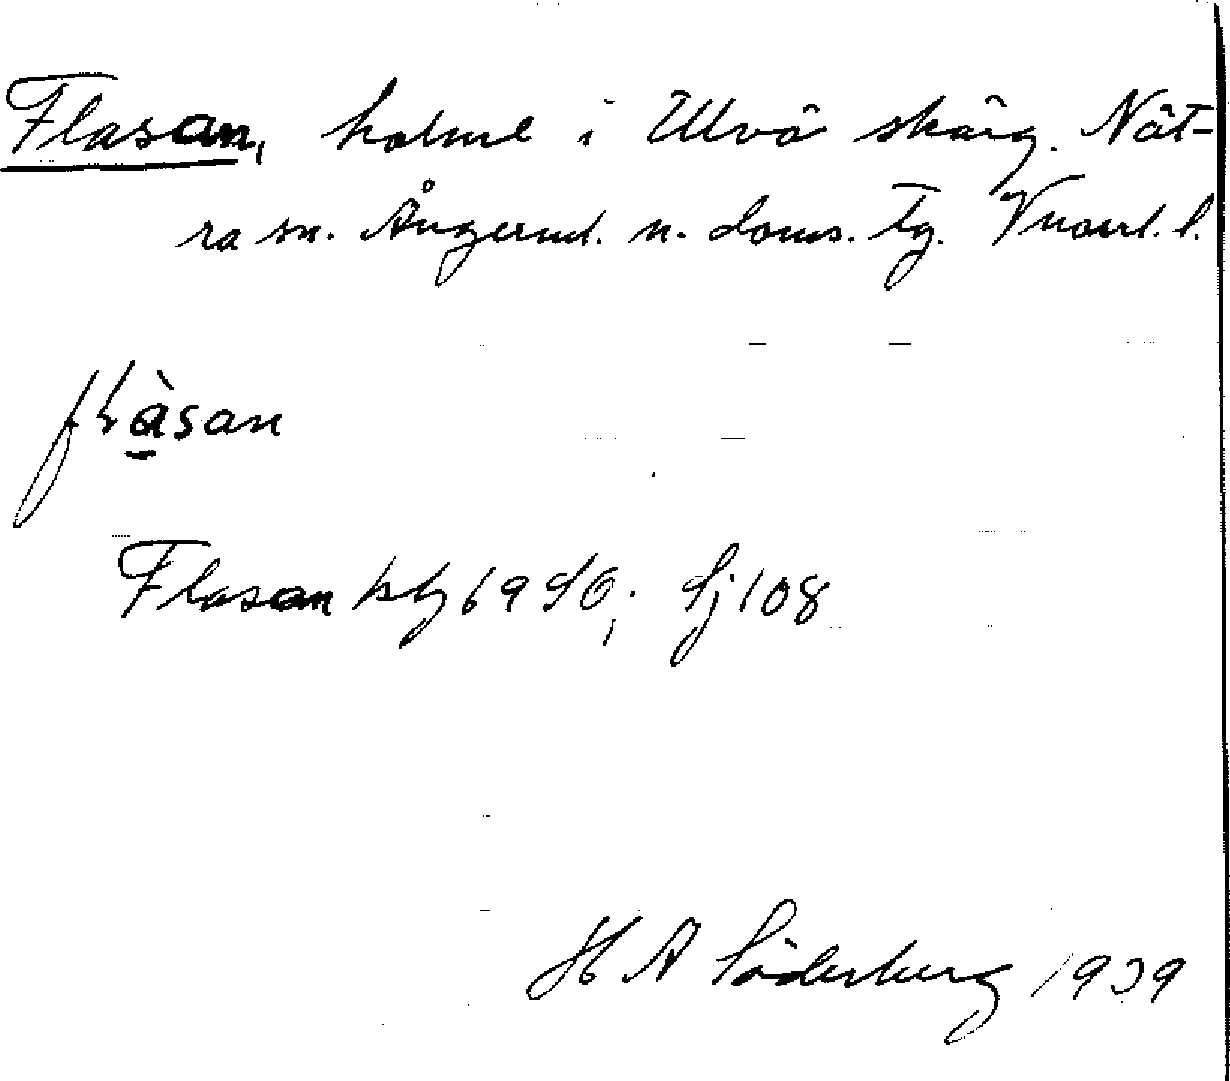 Flasan, holme i Ulvö skärg. Nät-
ra sn. Ångerml. n. doms. tg. Vnorrl. l.
flàsan
Flasan kbg 69 SO; Sj 108
H A Söderberg 1939